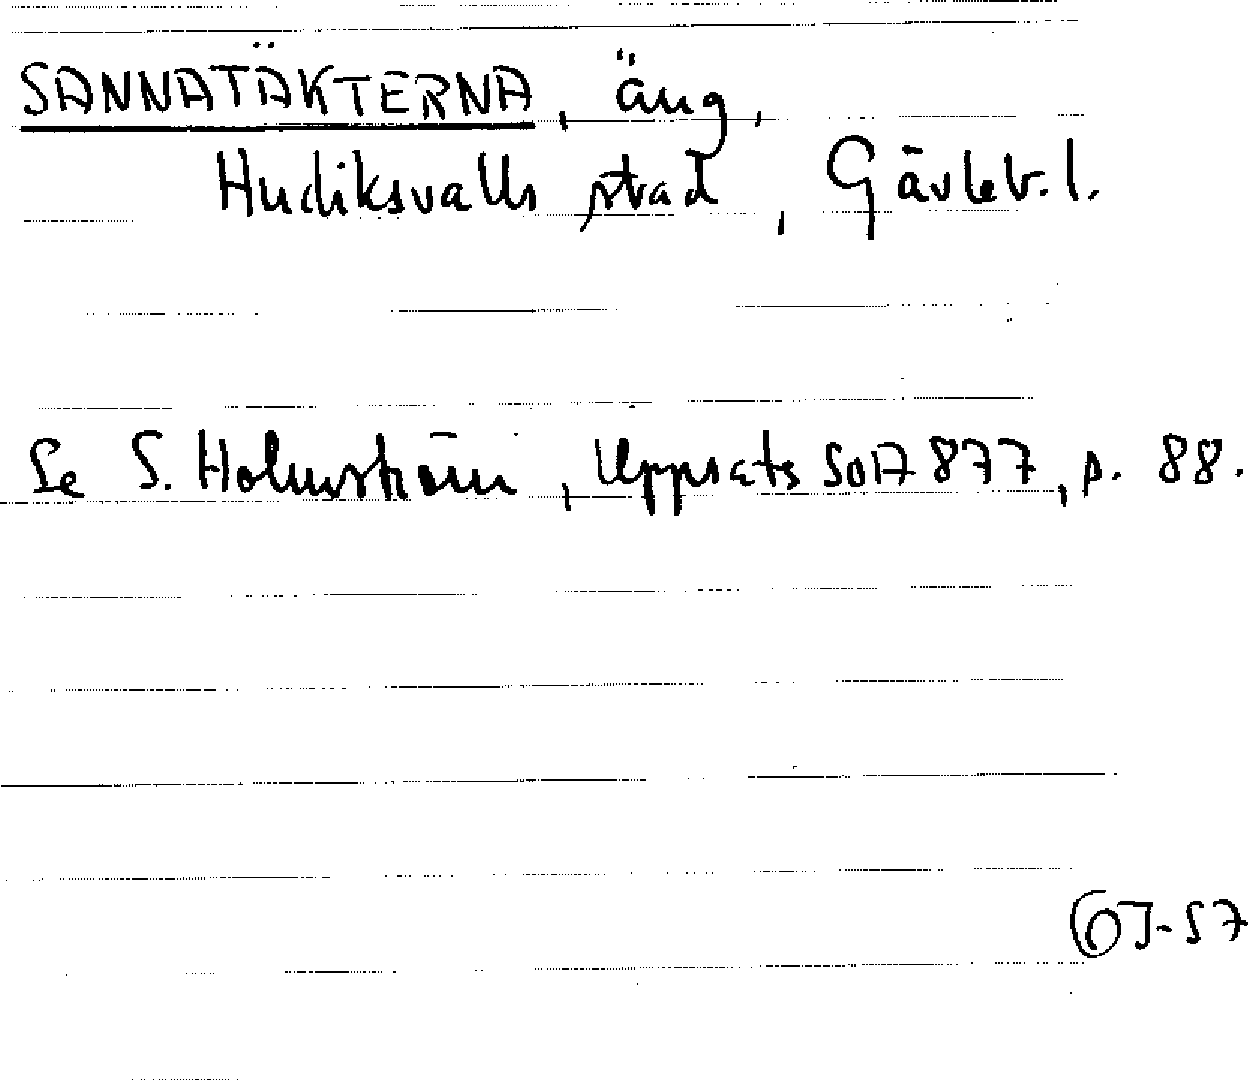 SANNATÄKTERNA, äng,
Hudiksvalls stad, Gävleb. l.
Se S. Holmström, Uppsats SOA 877, p. 88.
OJ-57